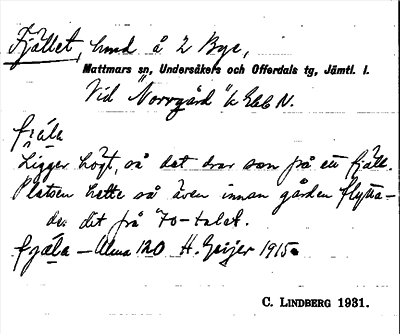 Fjället, hmd å 2 Bye,
Mattmars sn, Undersåkers och Offerdals tg, Jämtl. l.
Vid "Norrgård" å Ebl N.
fjäla
Ligger högt, så det drar som på ett fjäll.
Platsen hette så även innan gården flytta-
des dit på 70-talet.
fjäla – Alma 120 H. Geijer 1915.
C. LINDBERG 1931.